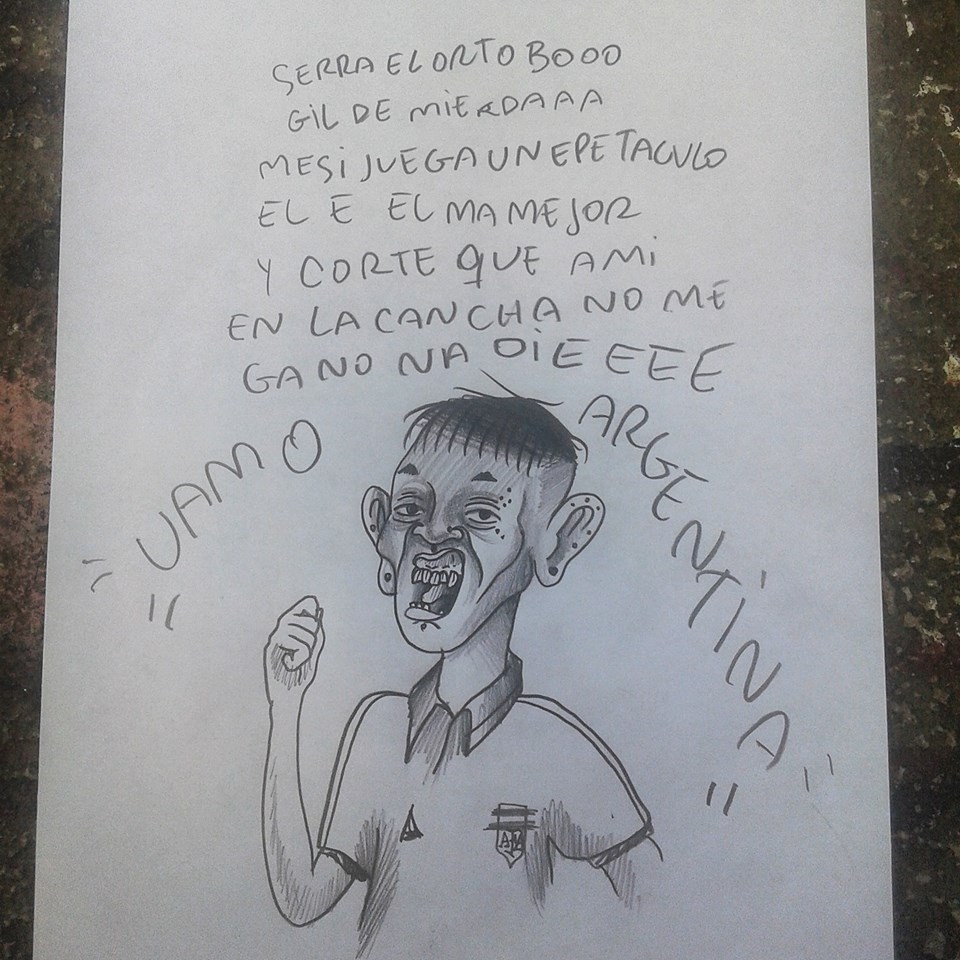 SERRA EL ORTO BOOO
GIL DE MIERDAAA
MESI JUEGA UN EPETACULO
EL E EL MA MEJOR
Y CORTE QUE AMI
EN LA CANCHA NO ME
GANO NADIE EEE
"VAMO ARGENTINA"